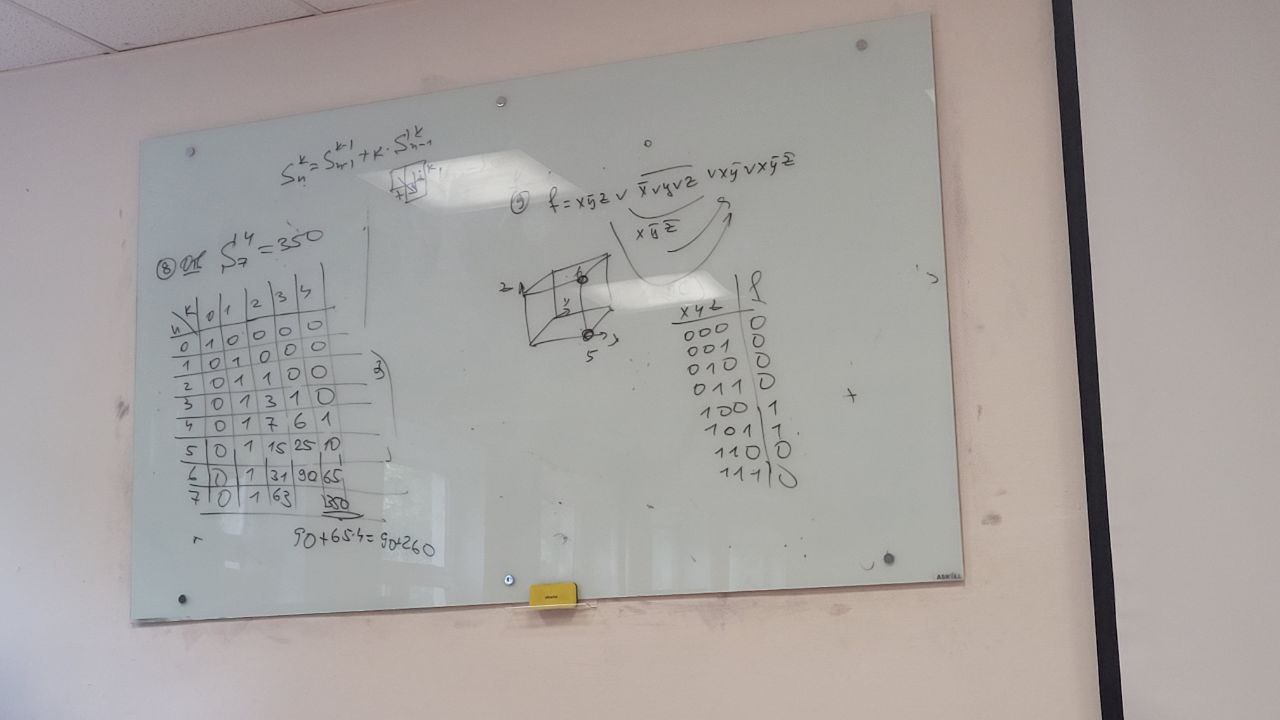 Sₙᵏ = Sₙ₋₁ᵏ⁻¹ + k · Sₙ₋₁ᵏ
⑧ S₇⁴ = 350
n\k 0 1 2 3 4
0 1 0 0 0 0
1 0 1 0 0 0
2 0 1 1 0 0
3 0 1 3 1 0
4 0 1 7 6 1
5 0 1 15 25 10
6 0 1 31 90 65
7 0 1 63 350
90+65·4=90+260
⑨ f = xy̅z ∨ x̅∨y∨z̅ ∨ xy̅ ∨ xy̅z̅
xy̅z̅
z
y
5
x y z f
000 0
001 0
010 0
011 0
100 1
101 1
110 0
111 0
ASKELL